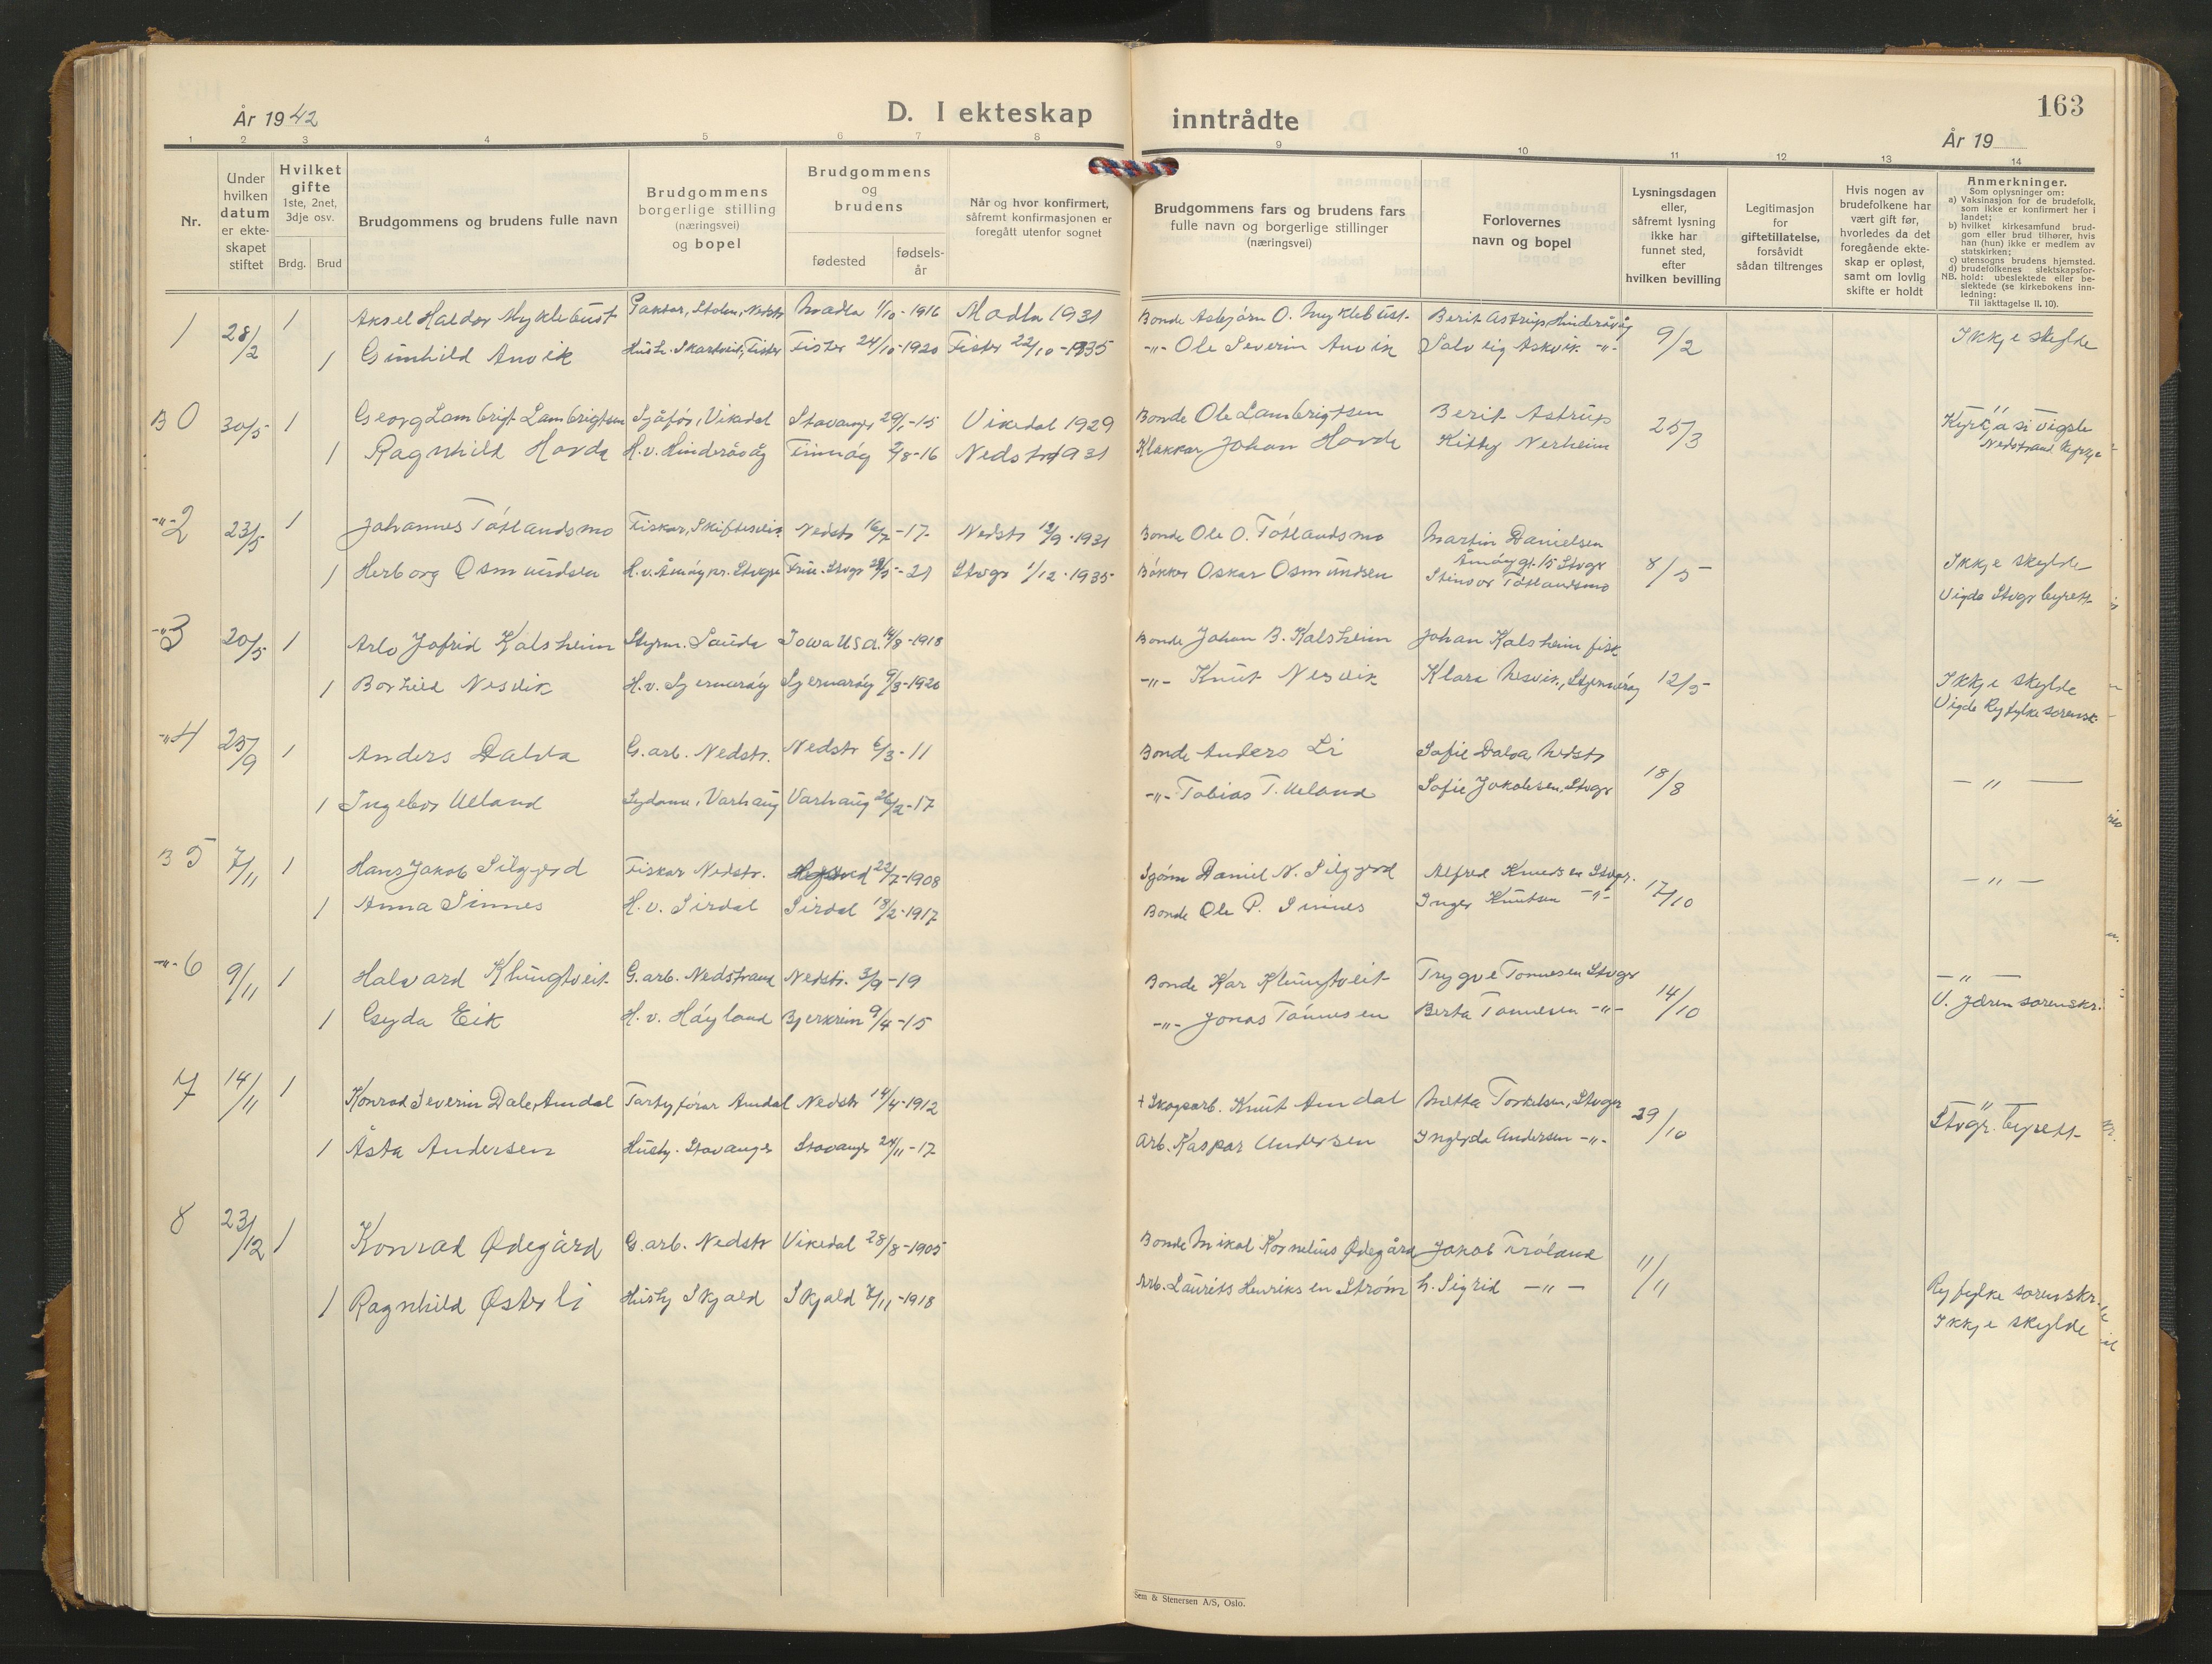 163
År 1942
D. I ekteskap inntrådte
År 19
1 2 3 4 5 6 7 8 9 10 11 12 13 14
Nr.
Under hvilken datum er ekteskapet stiftet
Hvilket gifte 1ste, 2net, 3dje osv.
Brdg. Brud
Brudgommens og brudens fulle navn
Brudgommens borgerlige stilling (næringsvei) og bopel
Brudgommens og brudens
fødested
fødselsår
Når og hvor konfirmert, såfremt konfirmasjonen er foregått utenfor sognet
Brudgommens fars og brudens fars fulle navn og borgerlige stillinger (næringsvei)
Forlovernes navn og bopel
Lysningsdagen eller, såfremt lysning ikke har funnet sted, efter hvilken bevilling
Legitimasjon for giftetillatelse, forsåvidt sådan tiltrenges
Hvis nogen av brudefolkene har vært gift før, hvorledes da det foregående ekteskap er opløst, samt om lovlig skifte er holdt
Anmerkninger.
Som oplysninger om:
a) Vaksinasjon for de brudefolk, som ikke er konfirmert her i landet;
b) hvilket kirkesamfund brudgom eller brud tilhører, hvis han (hun) ikke er medlem av statskirken;
c) utensogns brudens hjemsted.
d) brudefolkenes slektskapsforhold: ubeslektede eller beslektede (se kirkebokens innledning:
NB.
Til iakttagelse II. 10).
1 28/2 1 Aksel Haldor Myklebust Stolen, Nedstr Madla 1/10-1916 Madla 1931 Bonde Asbjørn O. Myklebust Berit Astrup, Hinderåvåg 9/2 Ikkje skylde
1 Gunhild Anvik Hush. Skartveit, Fister Fister 24/10-1920 Fister 22/10-1935 -"- Ole Severin Anvik Solveig Askvik -"-
B 0 30/5 1 Georg Lambrigt Lambrigtsen Sjåfør, Vikedal Stavanger 29/1-15 Vikedal 1929 Bonde Ole Lambrigtsen Berit Astrup 25/3 Kyrkja si vigsle
1 Ragnhild Hovda H.v. Hinderåvåg Finnøy 2/8-16 Nedstr 1931 Klokkar Johan Hovde Kitty Nerheim Nedstrand kyrkje
-"- 2 23/5 1 Johannes Tøtlandsmo Fiskar, Skiftesvik Nedstr 16/7-17 Nedstr 13/9-1931 Bonde Ole O. Tøtlandsmo Martin Danielsen
Åmøygt. 15 Stvgr 8/5 Ikkje skylde
1 Herborg Osmundsen Stvgr 1/12-1935 Bøkker Oskar Osmundsen Steinvor Tøtlandsmo
Vigde Stvgr byrett
-"- 3 20/5 1 Arlo Jofrid Kalsheim Styrm. Sauda Iowa USA. 14/8-1918 Bonde Johan B. Kalsheim Johan Kalsheim fisk
1 Borhild Nesvik H.v. Sjernarøy Sjernarøy 9/3-1920 -"- Knut Nesvik Klara Nesvik, Stjernarøy 12/5 Ikkje skylde
Vigde Ryfylke sorensk.
-"- 4 25/9 1 Anders Dalva G.arb. Nedstr. Nedstr 6/3-11 Bonde Anders Li Sofie Dalva Nedstr
18/8 -"-
1 Ingebor Ueland Sydame, Varhaug Varhaug 26/2-17 -"- Tobias T. Ueland Sofie Jakobsen, Stvgr
B 5 7/11 1 Hans Jakob Silgjerd Fiskar Nedstr. 22/7-1908 Daniel N. Silgjerd Alfred Knudsen Stvgr.
1 Anna Sinnes H.v. Sirdal Sirdal 18/2-1917 Bonde Ole P. Sinnes Inger Knutsen -"- 17/10 -"-
-"- 6 9/11 1 Halvard Klungtveit G.arb. Nedstrand Nedstr. 3/9-19 Bonde Kar Klungtveit Trygve Tonnesen Stvgr -"-
1 Gyda Eik H.v. Høyland Bjerkreim 9/4-15 -"- Jonas Tønnesen Berta Tonnesen -"- 14/10 V. Jæren sorenskr.
7 14/11 1 Konrad Severin Dale, Amdal Fartyførar Amdal Nedstr 14/4-1912 + Skogsarb. Knut Amdal Metta Torkelsen, Stvgr 29/10 "
1 Åsta Andersen Hushj. Stavanger Stavanger 24/11-17 Arb. Kaspar Andersen Ingerda Andersen -"- Stvgr. byrett
8 23/12 1 Konrad Ødegård G.arb. Nedstr Vikedal 28/8-1905 Bonde Mikal Kornelius Ødegård Jakob Frøland 11/11
1 Ragnhild Østerli Hushj Skjold Skjold 7/11-1918 Arb. Laurits Henriksen Strøm h. Sigrid -"- Ryfylke sorenskr.
Ikkje skylde
Sem & Stenersen A/S, Oslo.